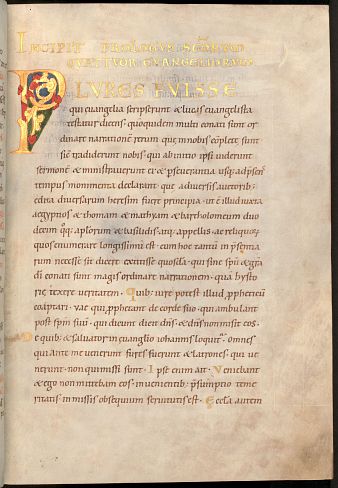 INCIPIT PROLOGUS
QUATTVOR EVANGELIORUM
PLURES FUISSE
qui euangelia scripserunt & lucas euangelista
testatur dicens quoquidem multi conati sunt or
dinare narrationem rerum que in nobis complete sunt
sic tradiderunt nobis qui ab initio ipsi viderunt
sermone & ministraverunt ei & pseverantia usq; ad psens
tempus monimenta declarant que adiversis auctorib;
edita diversarum heresum fuere principia ut e illud iuxta
aegyptios & thomam & mathyam & bartholomeum duo
decim qq; aplorum & basilidis atq; appellis ac reliquoru
quos enumerare longissimu est cum hoc tantu in psentia
rum necesse sit dicere extitisse quosda qui sine spu & gra
di conati sunt magis ordinare narrationem qua hysto
rie texere veritatem Quib; iure potest illud ppheticu
coaptari vae qui pphetant de corde suo qui ambulant
post spm suu qui dicunt dicit dns & dns non misit eos
De quib; & salvator in euanglio iohannis loquit omnes
qui ante me venerunt fures fuerunt & latrones qui ve
nerunt non qui missi sunt Ipse enim ait Veniebant
& ego non mittebam eos in venientib; psumptio teme
ritatis in missis obsequium servitutis est Eccla autem